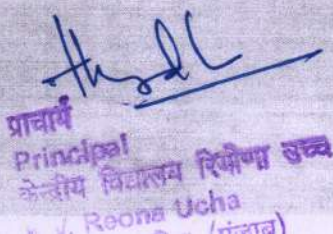 प्राचार्य
Principal
केन्द्रीय विद्यालय रियोणा उच्च
Reona Ucha
(पंजाब)